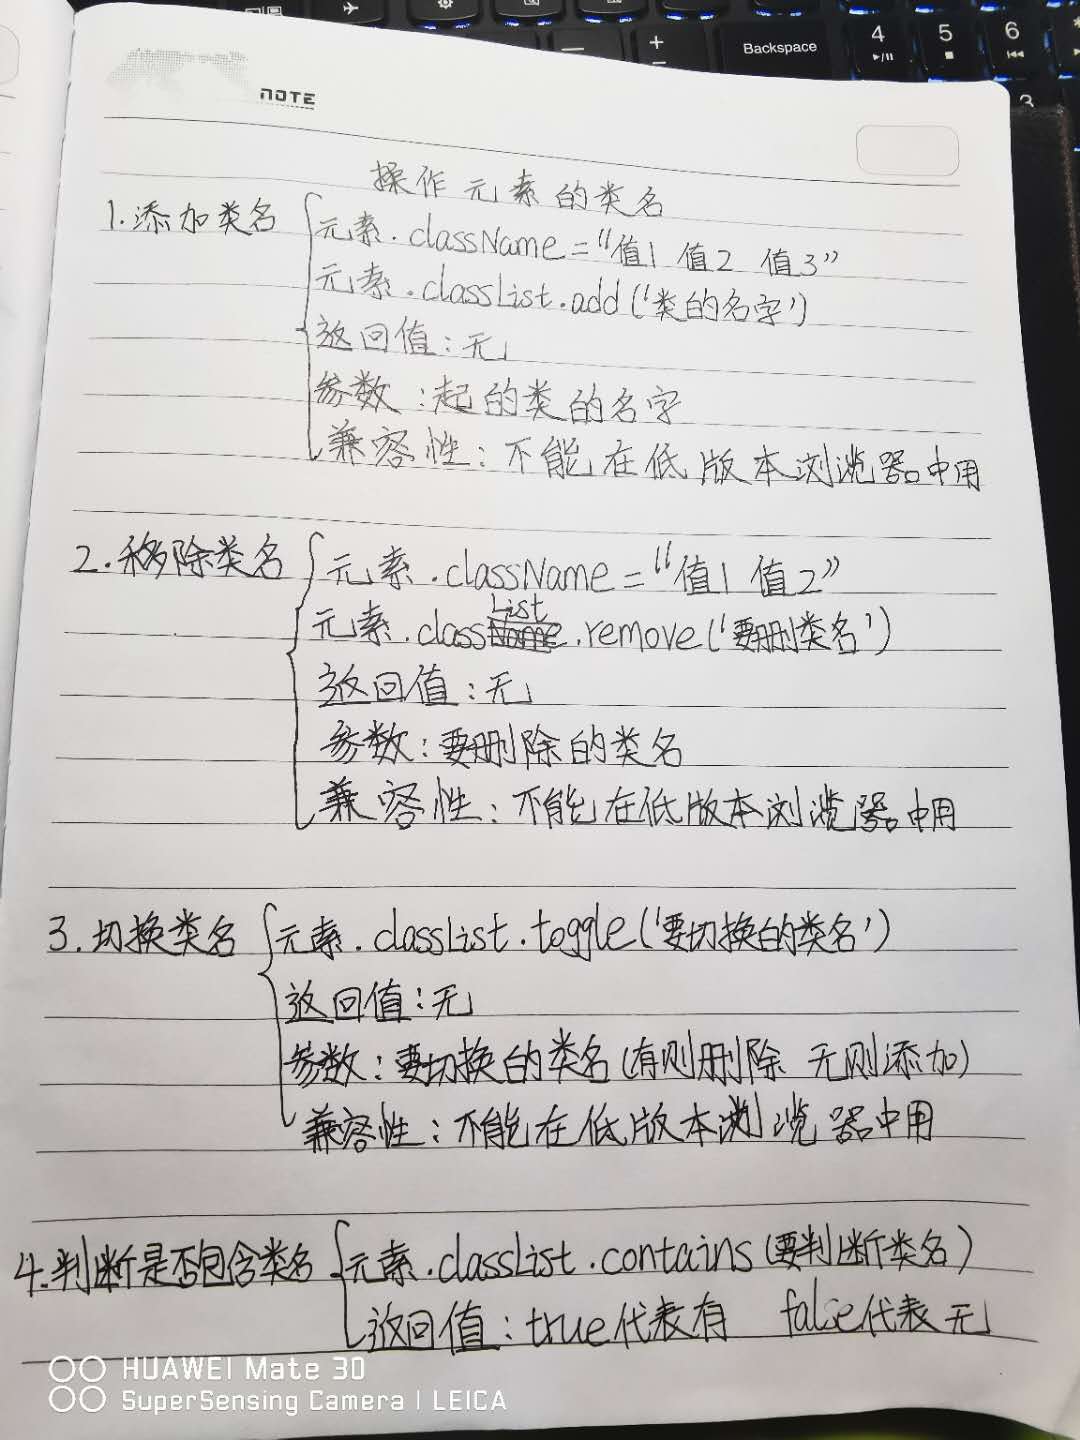 Backspace
4 5 6
3
NOTE
操作元素的类名
1.添加类名 元素.className="值1 值2 值3"
元素.classList.add('类的名字')
返回值:无
参数:起的类的名字
兼容性:不能在低版本浏览器中用
2.移除类名 元素.className="值1 值2"
元素.classList.remove('要删类名')
返回值:无
参数:要删除的类名
兼容性:不能在低版本浏览器中用
3.切换类名 元素.classList.toggle('要切换的类名')
返回值:无
参数:要切换的类名(有则删除 无则添加)
兼容性:不能在低版本浏览器中用
4.判断是否包含类名 元素.classList.contains(要判断类名)
返回值:true代表有 false代表无
HUAWEI Mate 30
SuperSensing Camera | LEICA